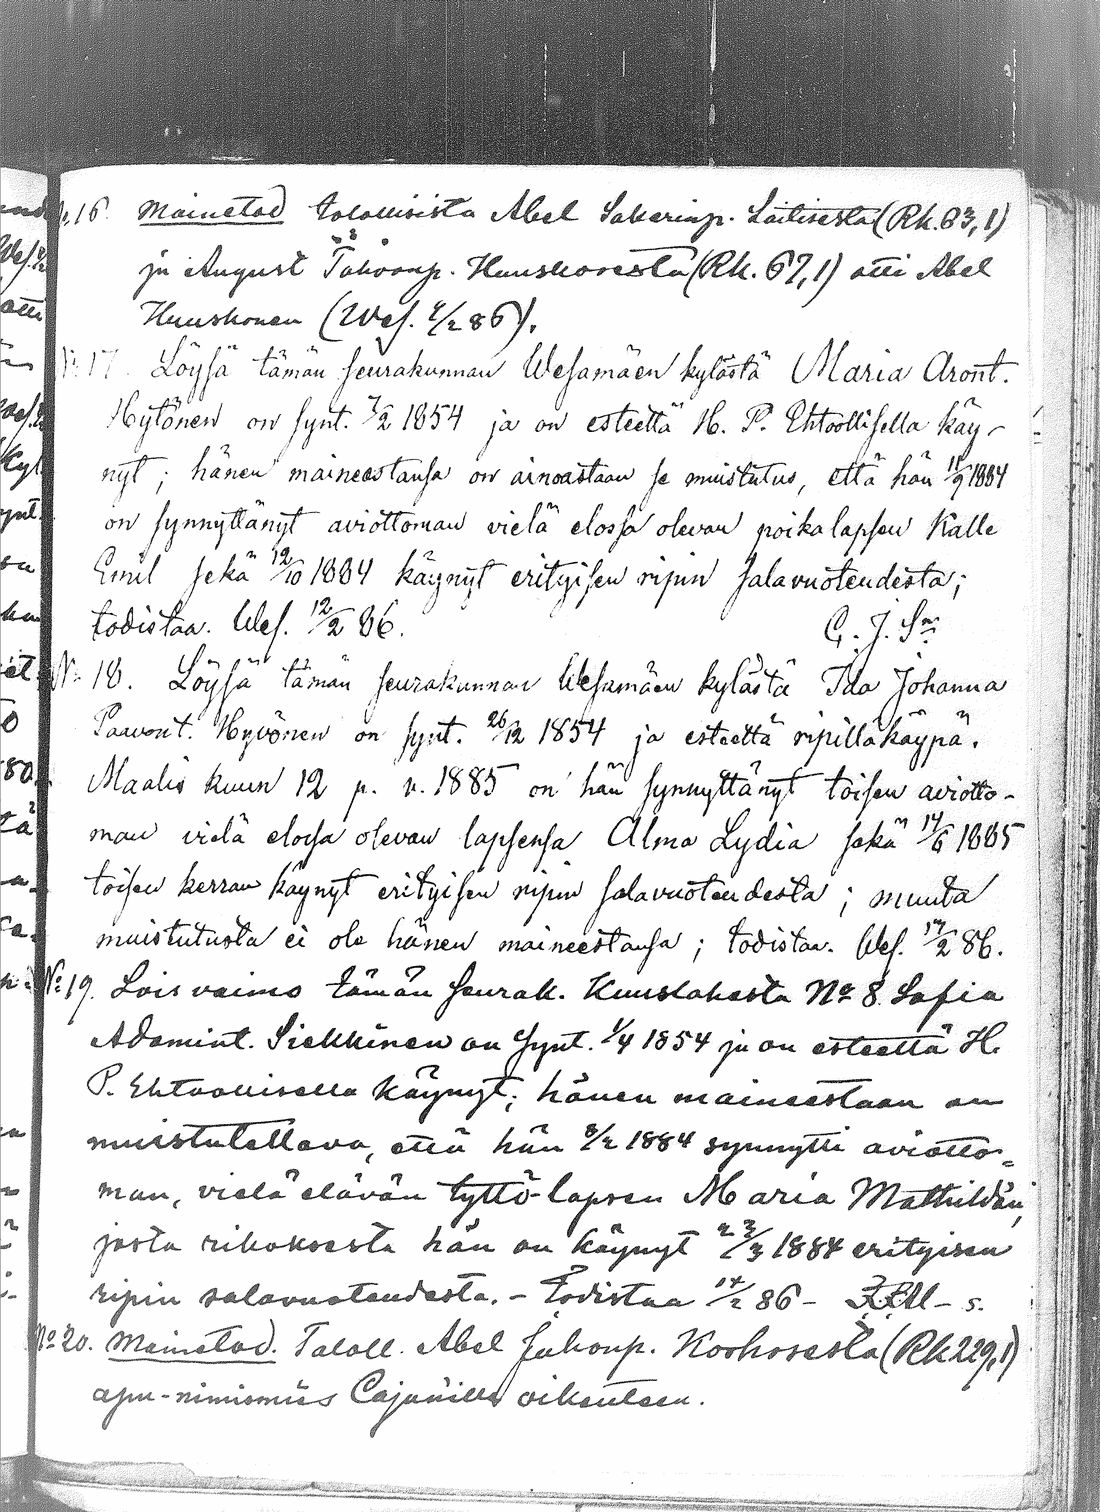 No. 16. Mainetod talollisista Abel Sakarinp. Laitisesta (Rk. 63,1)
ja August Juhonp. Huuskosesta (Rk. 67,1) otti Abel
Huuskonen (Wes. 4/2 86).
No. 17. Löysä tämän seurakunnan Wesamäen kylästä Maria Aront.
Hytönen on synt. 7/2 1854 ja on esteettä H. P. Ehtoollisella käy-
nyt; hänen maineestansa on ainoastaan se muistutus, että hän 11/9 1884
on synnyttänyt aviottoman vielä elossa olevan poikalapsen Kalle
Emil sekä 12/10 1884 käynyt erityisen ripin salavuoteudesta;
todistaa. Wes. 12/2 86. C. J. Sn.
No. 18. Löysä tämän seurakunnan Wesamäen kylästä Ida Johanna
Paavont. Hyvönen on synt. 26/12 1854 ja esteettä ripillä käypä.
Maalis kuun 12 p. v. 1885 on hän synnyttänyt toisen aviotto-
man vielä elossa olevan lapsensa Alma Lydia sekä 14/6 1885
toisen kerran käynyt erityisen ripin salavuoteudesta; muuta
muistutusta ei ole hänen maineestansa; todistaa. Wes. 17/2 86.
No 19. Loisvaimo tämän seurak. Kuuslahesta No 8 Sofia
Adamint. Siekkinen on synt. 1/4 1854 ja on esteettä H.
P. Ehtoollisella käynyt; hänen maineestaan on
muistutettava, että hän 8/2 1884 synnytti aviotto-
man, vielä elävän tyttö-lapsen Maria Mathildän,
josta rikoksesta hän on käynyt 23/3 1884 erityisen
ripin salavuoteudesta. - Todistaa 14/2 86 - s.
No 20. Mainetod. Taloll. Abel Juhonp. Korhosesta (Rk 229,1)
apu-nimismies Cajanille oikeuteen.